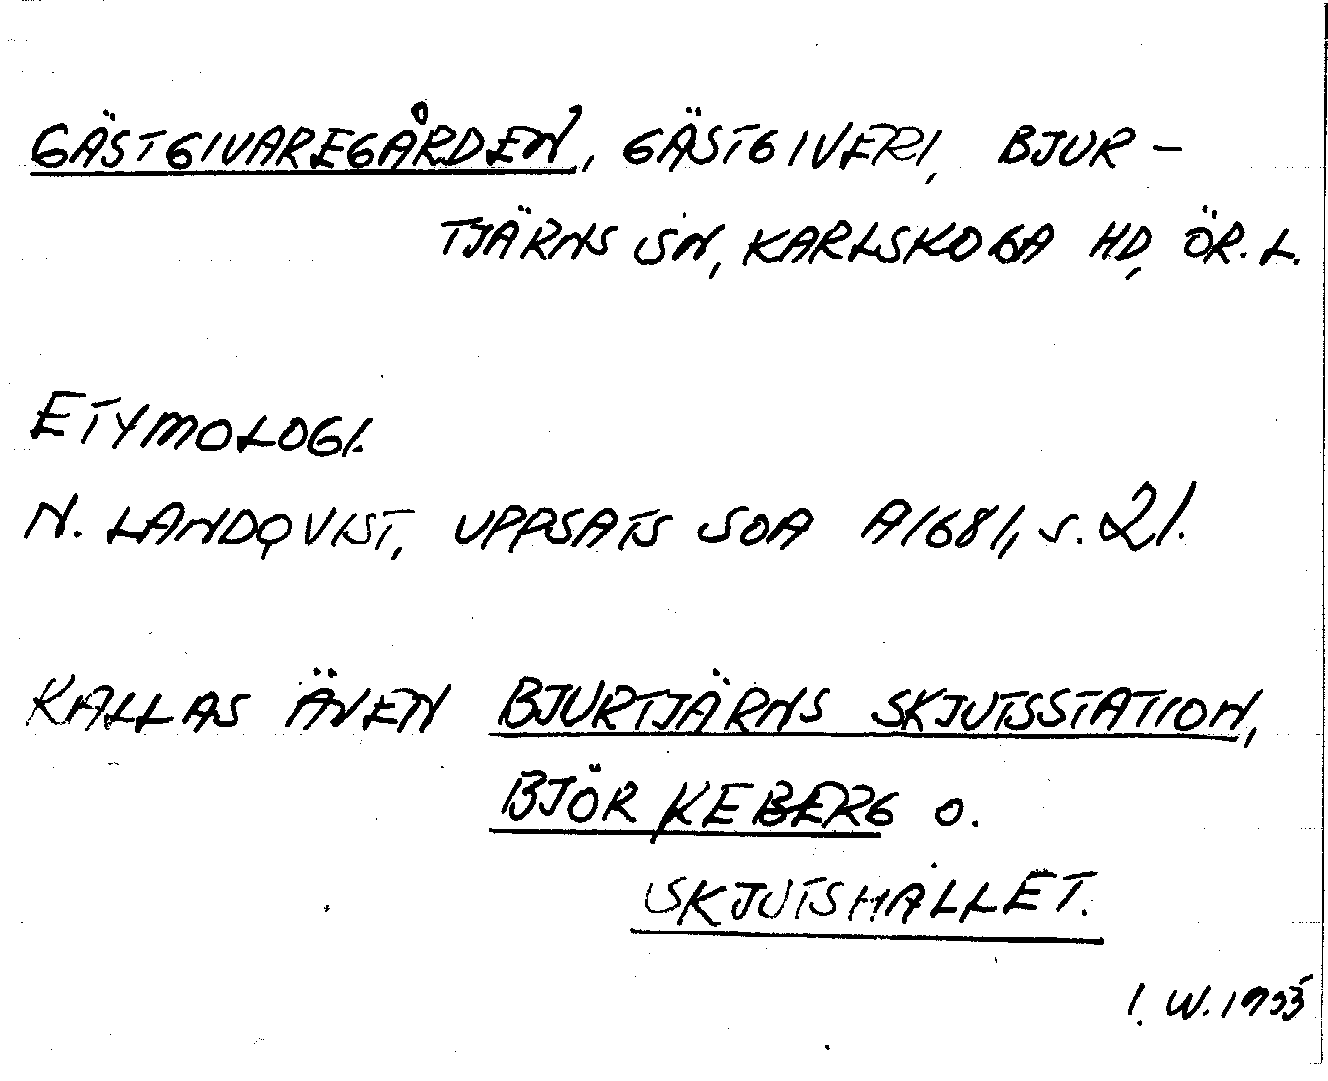 GÄSTGIVAREGÅRDEN, GÄSTGIVERI, BJUR-
TJÄRNS SN, KARLSKOGA HD, ÖR. L.
ETYMOLOGI.
N. LANDQVIST, UPPSATS SOA A1681, S. 21.
KALLAS ÄVEN BJURTJÄRNS SKJUTSSTATION,
BJÖRKEBERG O.
SKJUTSHÅLLET.
I. W.